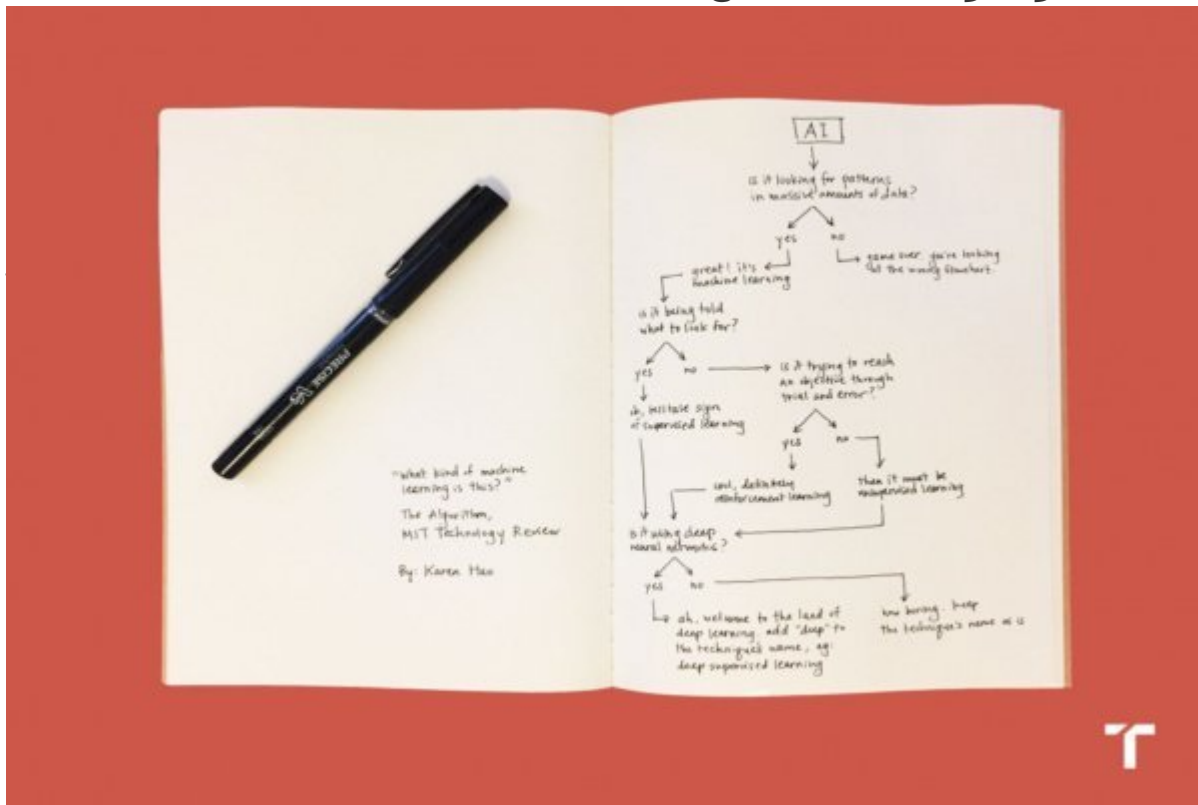 PRECISE V5
"What kind of machine
learning is this?"
The Algorithm,
MIT Technology Review
By: Karen Hao
AI
is it looking for patterns
in massive amounts of data?
yes
no
great! it's
machine learning
game over. you're looking
at the wrong flowchart.
is it being told
what to look for?
yes
no
is it trying to reach
an objective through
trial and error?
ah, telltale sign
of supervised learning
yes
no
cool, definitely
reinforcement learning
then it must be
unsupervised learning
is it using deep
neural networks?
yes
no
ah, welcome to the land of
deep learning. add "deep" to
the technique's name, eg:
deep supervised learning
how boring. keep
the technique's name as is
T